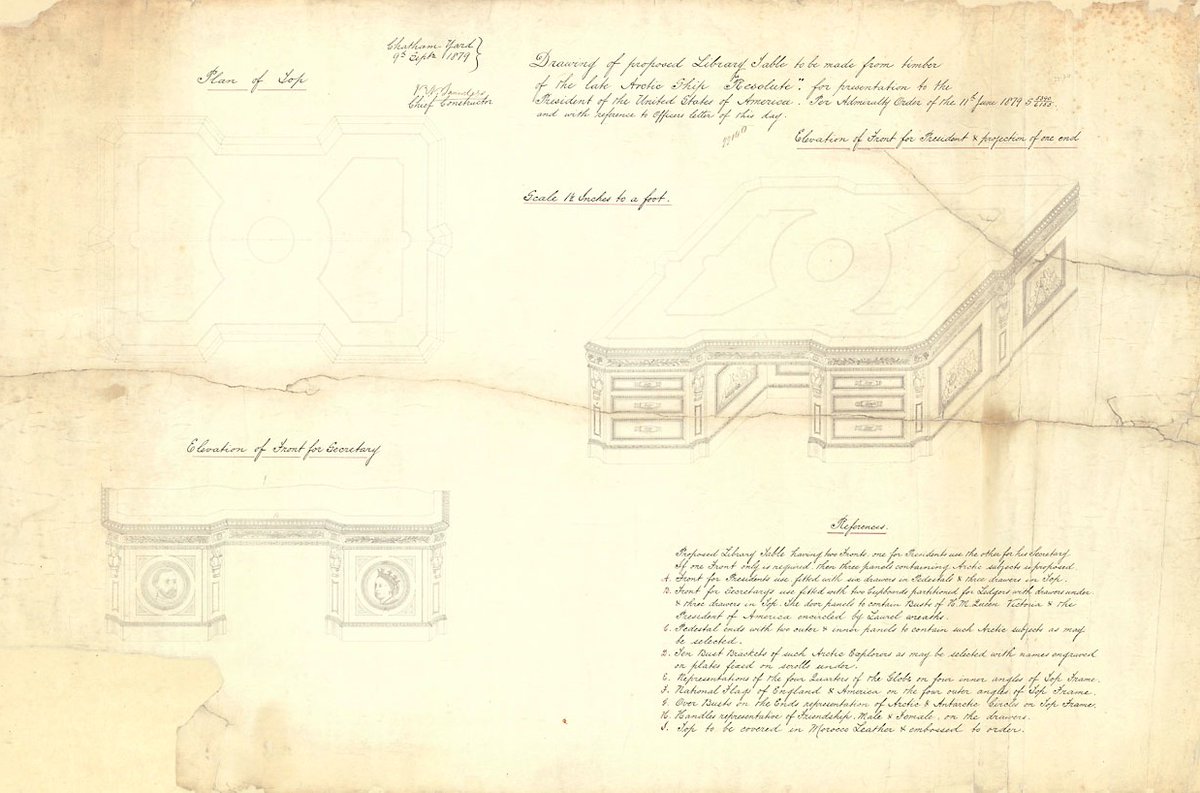 Plan of Top
Chatham Yard
9th Septr 1879
Chief Constructor
Drawing of proposed Library Table to be made from timber
of the late Arctic Ship "Resolute", for presentation to the
President of the United States of America. Per Admiralty Order of the 11th June 1879 S
and with reference to Officers letter of this day.
Elevation of Front for President & projection of one end
Scale 1½ Inches to a foot.
Elevation of Front for Secretary
References.
Proposed Library Table having two Fronts one for Presidents use the other for his Secretary
If one Front only is required, then three panels containing Arctic subjects is proposed
A. Front for Presidents use fitted with six drawers in Pedestals & three drawers in Top.
B. Front for Secretarys use fitted with two Cupboards partitioned for Ledgers with drawers under
& three drawers in Top. The door panels to contain Busts of H.M. Queen Victoria & the
President of America encircled by Laurel wreaths.
C. Pedestal ends with two outer & inner panels to contain such Arctic subjects as may
be selected.
D. Ten Bust Brackets of such Arctic Explorers as may be selected with names engraved
on plates fixed on scrolls under.
E. Representations of the four Quarters of the Globe on four inner angles of Top Frame.
F. National Flags of England & America on the four outer angles of Top Frame.
G. Over Busts on the Ends representation of Arctic & Antarctic Circles on Top Frame.
H. Handles representative of Friendship, Male & Female, on the drawers.
I. Top to be covered in Morocco Leather & embossed to order.